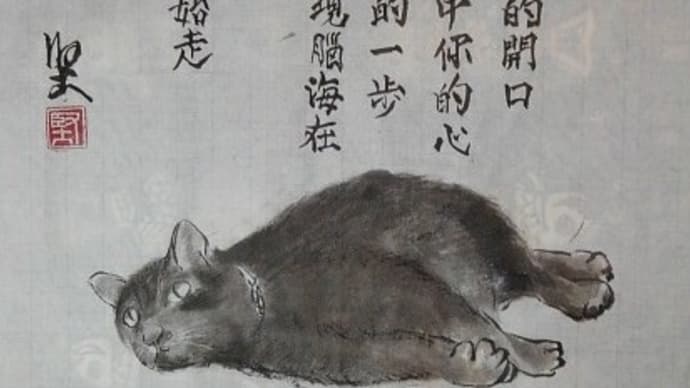 的開口
中你的心
的一步
現腦海在
始走
堅